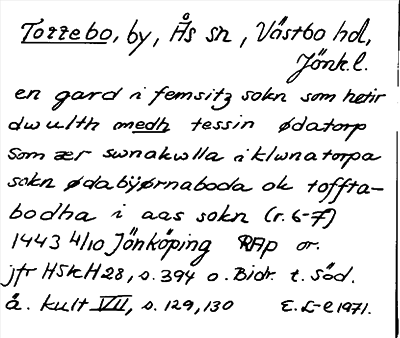 Torrebo, by, Ås sn, Västbo hd,
Jönk.l.
en gard i femsitz sokn som hetir
dwulth medh tessin ødatorp
som ær swnakwlla i klwnatorpa
sokn ødabÿørnaboda ok toffta-
bodha i aas sokn (r. 6-7)
1443 4/10 Jönköping RAp or.
jfr HSkH28, s. 394 o. Bidr. t. Söd.
å. kult VII, s. 129, 130 E. L-e 1971.